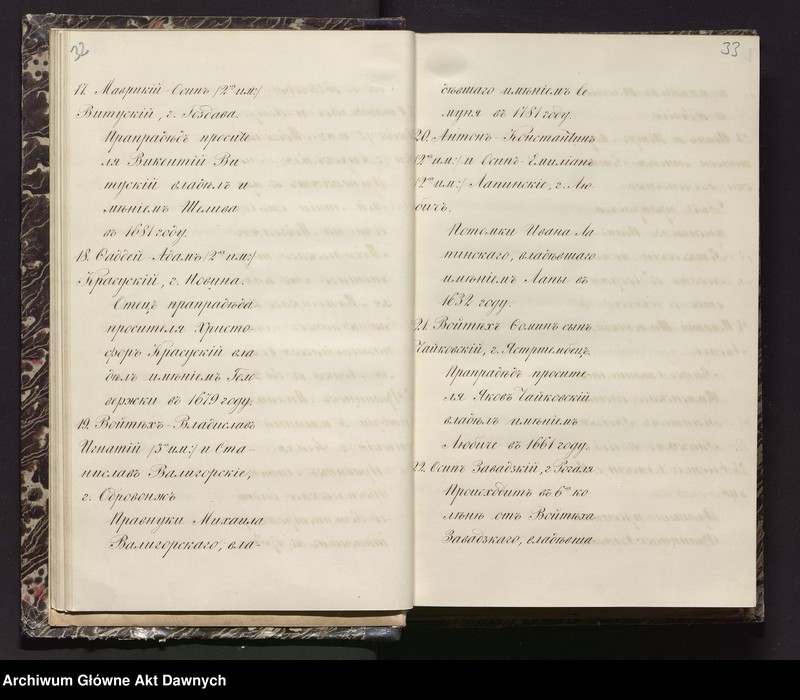 32
17. Маврикій-Осипъ /2хъ им:/
Витускій, г. Гоздава.
Прапрадѣдъ просите
ля Викентій Ви-
тускій владѣлъ и
мѣніемъ Шелива
въ 1681 году.
18. Фаддей-Адамъ /2хъ им:/
Красускій, г. Новина.
Отецъ прапрадѣда
просителя Христо-
форъ Красускій вла-
дѣлъ имѣніемъ Голо-
вержки въ 1679 году.
19. Войтѣхъ-Владиславъ
Игнатій /3хъ им:/ и Ста-
ниславъ Валигорскіе,
г. Одровонжъ
Правнуки Михаила
Валигорскаго, вла-
33
дѣвшаго имѣніемъ Се
муня въ 1781 году.
20. Антонъ-Константинъ
/2хъ им:/ и Осипъ-Емиліанъ
/2хъ им:/ Лапинскіе, г. Лю-
бичъ.
Потомки Ивана Ла
пинскаго, владѣвшаго
имѣніемъ Лапы въ
1632 году.
21. Войтѣхъ Фоминъ сынъ
Чайковскій, г. Ястржембецъ.
Прапрадѣдъ просите
ля Яковъ Чайковскій
владѣлъ имѣніемъ
Любиче въ 1661 году.
22. Осипъ Завадзкій, г. Рогаля
Происходитъ въ 6мъ ко
лѣнѣ отъ Войтѣха
Завадзкаго, владѣвша
Archiwum Główne Akt Dawnych